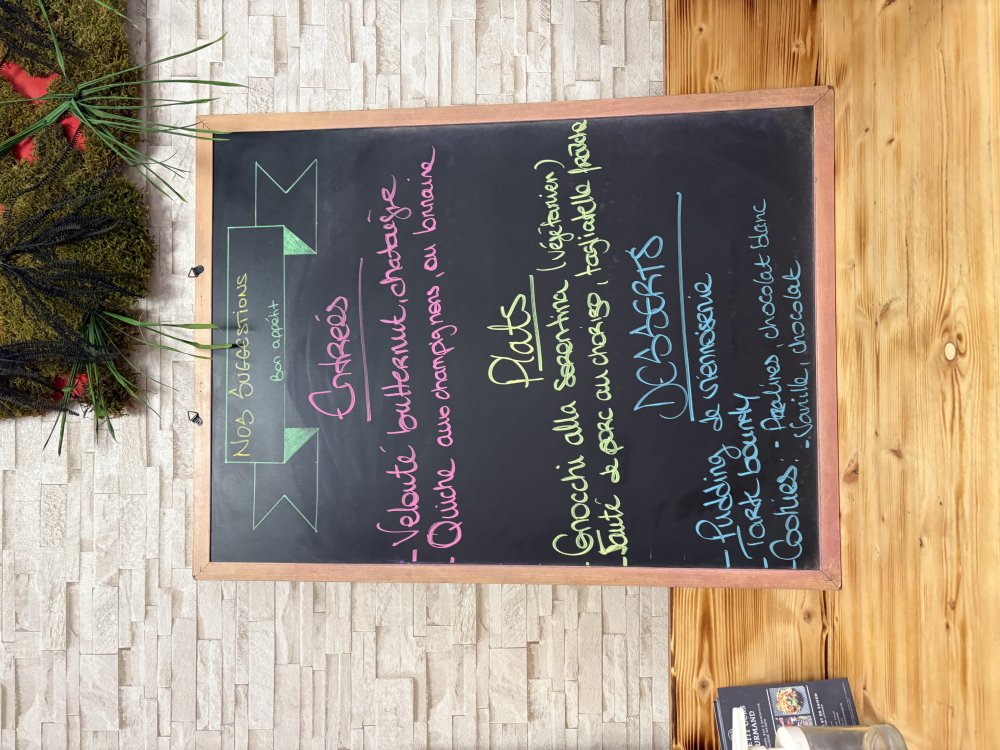 NOS SUGGESTIONS
Bon appétit
Entrées
- Velouté butternut, chataigne
- Quiche aux champignons, ou lorraine
Plats
- Gnocchi alla Sorentina (végétarien)
- Sauté de porc au chorizo, tagliatelle fraîche
DESSERTS
- Pudding de viennoiserie
- Tarte bounty
- Cookies: - Pralines, chocolat blanc
- Vanille, chocolat